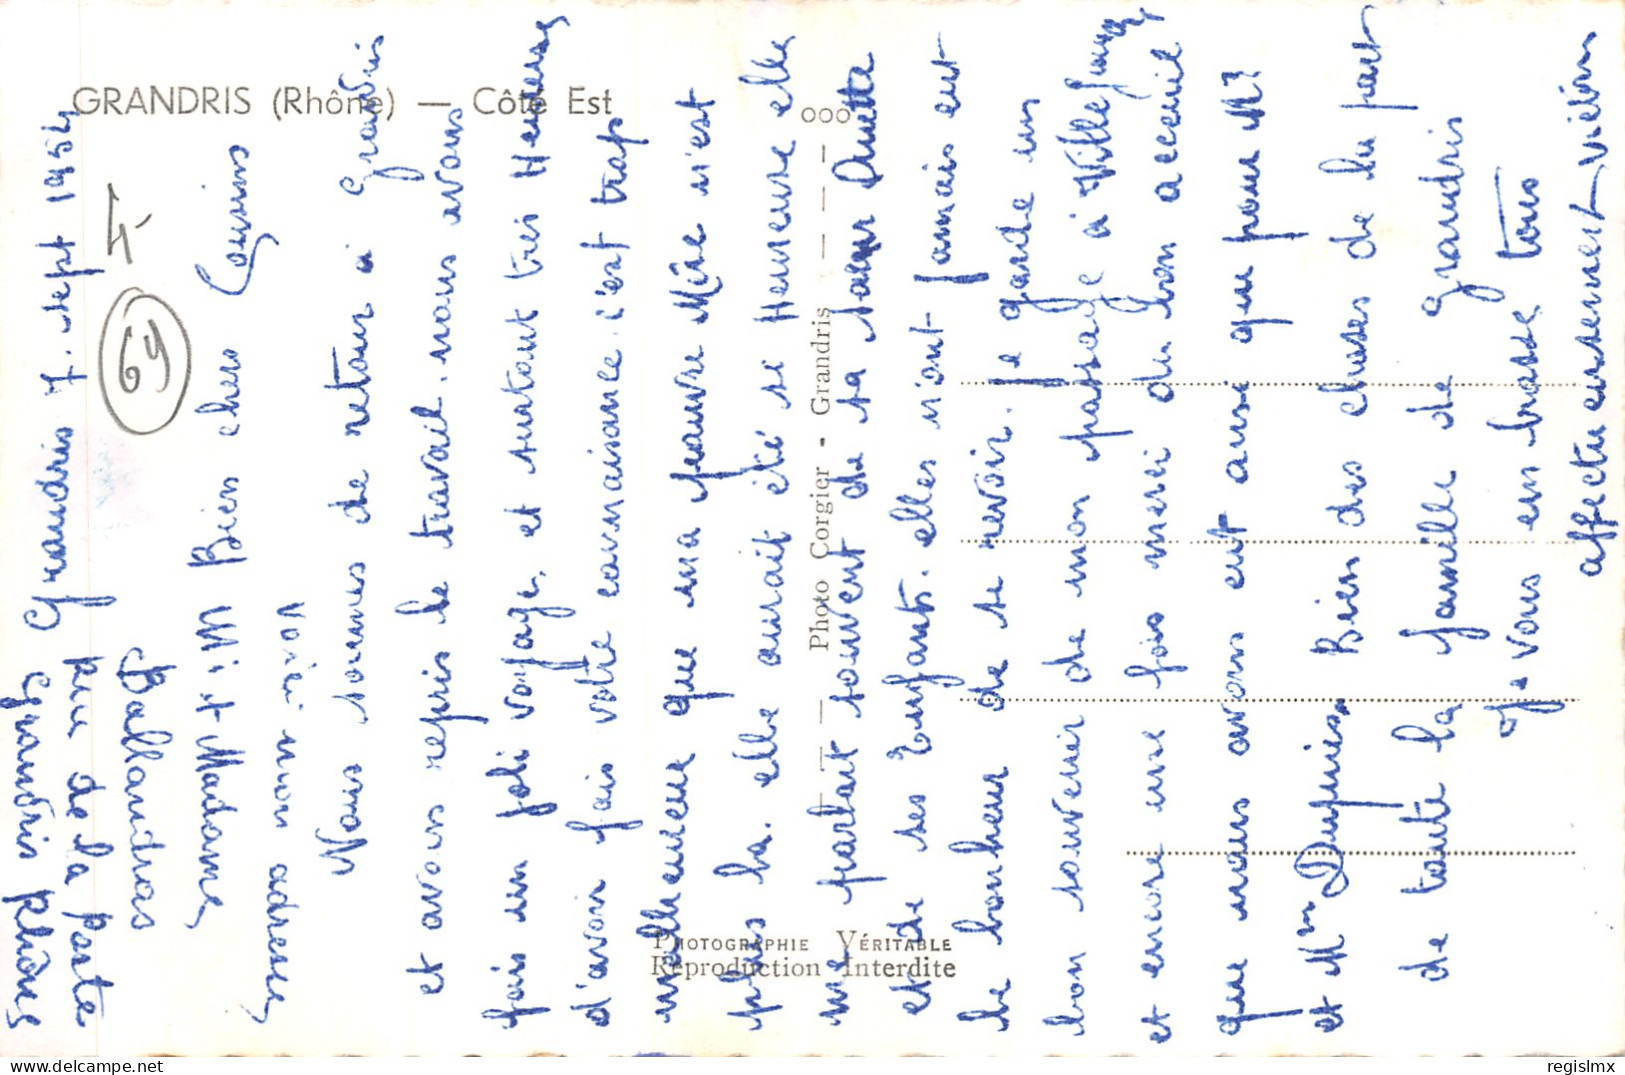 GRANDRIS (Rhône) — Côte Est
Photo Corgier - Grandris
PHOTOGRAPHIE VÉRITABLE
Reproduction Interdite
69
Grandris 7. sept 1954
M. + Madame
Ballandras
rue de la Poste
Grandris Rhône
voici mon adresse
Bien chers Cousins
Nous sommes de retour à Grandris
et avons repris le travail. nous avons
fais un joli voyage, et surtout tres Heureux
d'avoir fais votre connaisance. c'est trop
malheureux que ma pauvre Mère n'est
plus la. elle aurait été si Heureuse elle
me parlait souvent de sa sœur Annette
et de ses Enfants. elles n'ont jamais eut
le bonheur de se revoir. Je garde un
bon souvenir de mon passage à Villefranche
et encore une fois merci du bon accueil
que nous avons eut ainsi que pour Mr
et Mme Dupuis,
Bien des choses de la part
de toute la famille de grandris
Je vous embrasse tous
affectueusement
regislmx